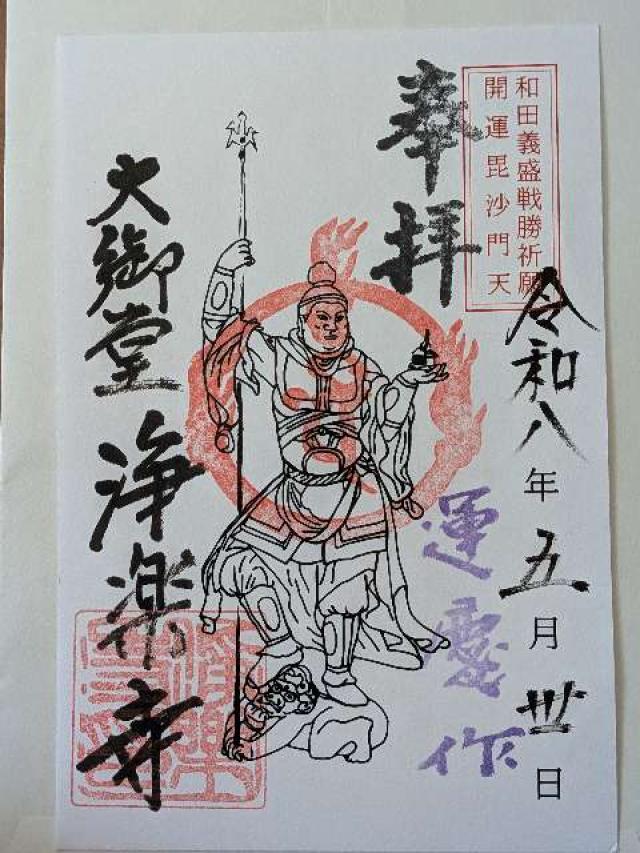 和田義盛戦勝祈願
開運毘沙門天
奉拝
令和八年五月卅日
運慶作
大御堂
浄楽寺